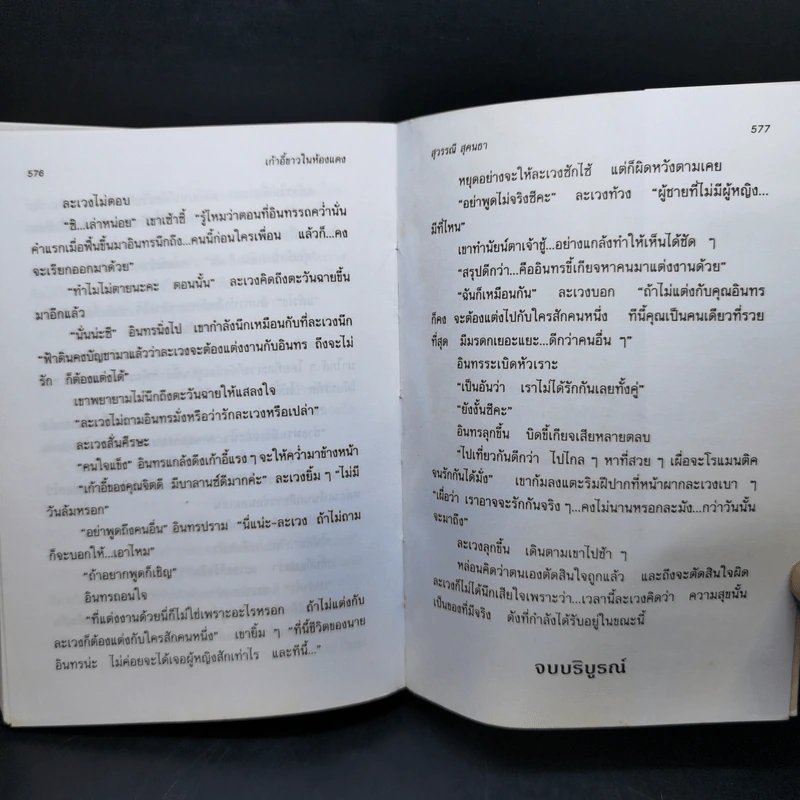 576
เก้าอี้ขาวในห้องแดง
ละเวงไม่ตอบ
“ซิ...เล่าหน่อย” เขาเซ้าซี้ “รู้ไหมว่าตอนที่อินทรรถคว่ำนั่น
คำแรกเมื่อฟื้นขึ้นมาอินทรนึกถึง...คนนี้ก่อนใครเพื่อน แล้วก็...คง
จะเรียกออกมาด้วย”
“ทำไมไม่ตายนะคะ ตอนนั้น” ละเวงคิดถึงตะวันฉายขึ้น
มาอีกแล้ว
“นั่นน่ะซี” อินทรนิ่งไป เขากำลังนึกเหมือนกับที่ละเวงนึก
“ฟ้าดินคงบัญชามาแล้วว่าละเวงจะต้องแต่งงานกับอินทร ถึงจะไม่
รัก ก็ต้องแต่งได้”
เขาพยายามไม่นึกถึงตะวันฉายให้แสลงใจ
“ละเวงไม่ถามอินทรมั่งหรือว่ารักละเวงหรือเปล่า”
ละเวงสั่นศีรษะ
“คนใจแข็ง” อินทรแกล้งดึงเก้าอี้แรง ๆ จะให้คว่ำมาข้างหน้า
“เก้าอี้ของคุณจิตดี มีบาลานซ์ดีมากค่ะ” ละเวงยิ้ม ๆ “ไม่มี
วันล้มหรอก”
“อย่าพูดถึงคนอื่น” อินทรปราม “นี่แน่ะ-ละเวง ถ้าไม่ถาม
ก็จะบอกให้...เอาไหม”
“ถ้าอยากพูดก็เชิญ”
อินทรถอนใจ
“ที่แต่งงานด้วยนี่ก็ไม่ใช่เพราะอะไรหรอก ถ้าไม่แต่งกับ
ละเวงก็ต้องแต่งกับใครสักคนหนึ่ง” เขายิ้ม ๆ “ที่นี้ชีวิตของนาย
อินทรน่ะ ไม่ค่อยจะได้เจอผู้หญิงสักเท่าไร และทีนี้...”
577
สุวรรณี สุคนธา
หยุดอย่างจะให้ละเวงซักไซ้ แต่ก็ผิดหวังตามเคย
“อย่าพูดไม่จริงซีคะ” ละเวงท้วง “ผู้ชายที่ไม่มีผู้หญิง...
มีที่ไหน”
เขาทำนัยน์ตาเจ้าชู้...อย่างแกล้งทำให้เห็นได้ชัด ๆ
“สรุปดีกว่า...คืออินทรขี้เกียจหาคนมาแต่งงานด้วย”
“ฉันก็เหมือนกัน” ละเวงบอก “ถ้าไม่แต่งกับคุณอินทร
ก็คง จะต้องแต่งไปกับใครสักคนหนึ่ง ทีนี้คุณเป็นคนเดียวที่รวย
ที่สุด มีมรดกเยอะแยะ...ดีกว่าคนอื่น ๆ”
อินทรระเบิดหัวเราะ
“เป็นอันว่า เราไม่ได้รักกันเลยทั้งคู่”
“ยังงั้นซีคะ”
อินทรลุกขึ้น บิดขี้เกียจเสียหลายตลบ
“ไปเที่ยวกันดีกว่า ไปไกล ๆ หาที่สวย ๆ เผื่อจะโรแมนติค
จนรักกันได้มั่ง” เขาก้มลงแตะริมฝีปากที่หน้าผากละเวงเบา ๆ
“เผื่อว่า เราอาจจะรักกันจริง ๆ...คงไม่นานหรอกละมัง...กว่าวันนั้น
จะมาถึง”
ละเวงลุกขึ้น เดินตามเขาไปช้า ๆ
หล่อนคิดว่าตนเองตัดสินใจถูกแล้ว และถึงจะตัดสินใจผิด
ละเวงก็ไม่ได้นึกเสียใจเพราะว่า...เวลานี้ละเวงคิดว่า ความสุขนั้น
เป็นของที่มีจริง ดังที่กำลังได้รับอยู่ในขณะนี้
จบบริบูรณ์